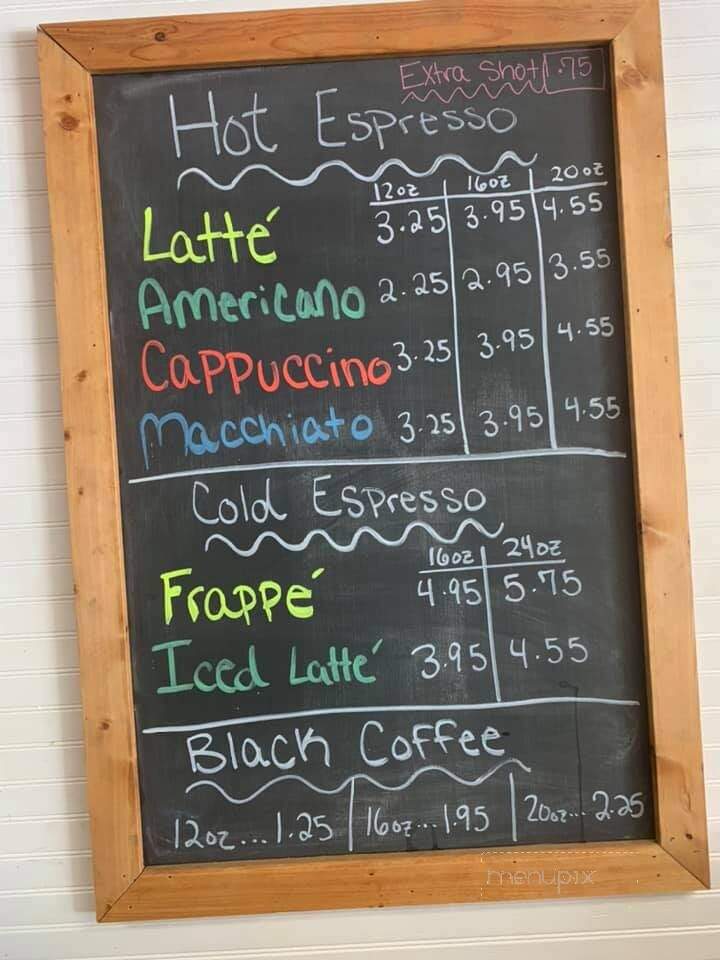 Extra Shot .75
Hot Espresso
12oz 16oz 20oz
Latté 3.25 3.95 4.55
Americano 2.25 2.95 3.55
Cappuccino 3.25 3.95 4.55
Macchiato 3.25 3.95 4.55
Cold Espresso
16oz 24oz
Frappé 4.95 5.75
Iced Latté 3.95 4.55
Black Coffee
12oz...1.25 16oz...1.95 20oz...2.25
menupix